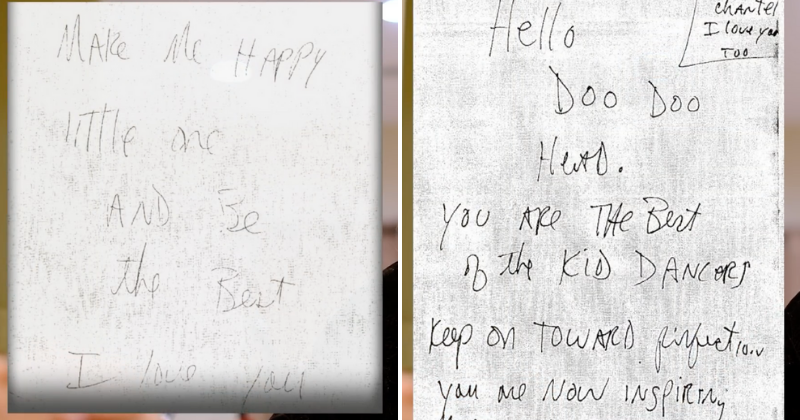 MAKE Me HAPPY
little one
AND Be
the Best
I love you
chANTEl
I love you
Too
Hello
Doo Doo
HeAD.
you ARe THe Best
of the KID DANCERS
Keep on TOWARD perfection
you are NOW INSPIRINg